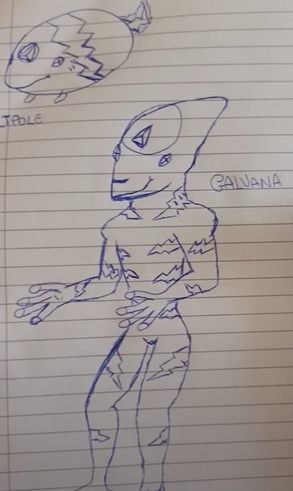 TPOLE
GALVANA